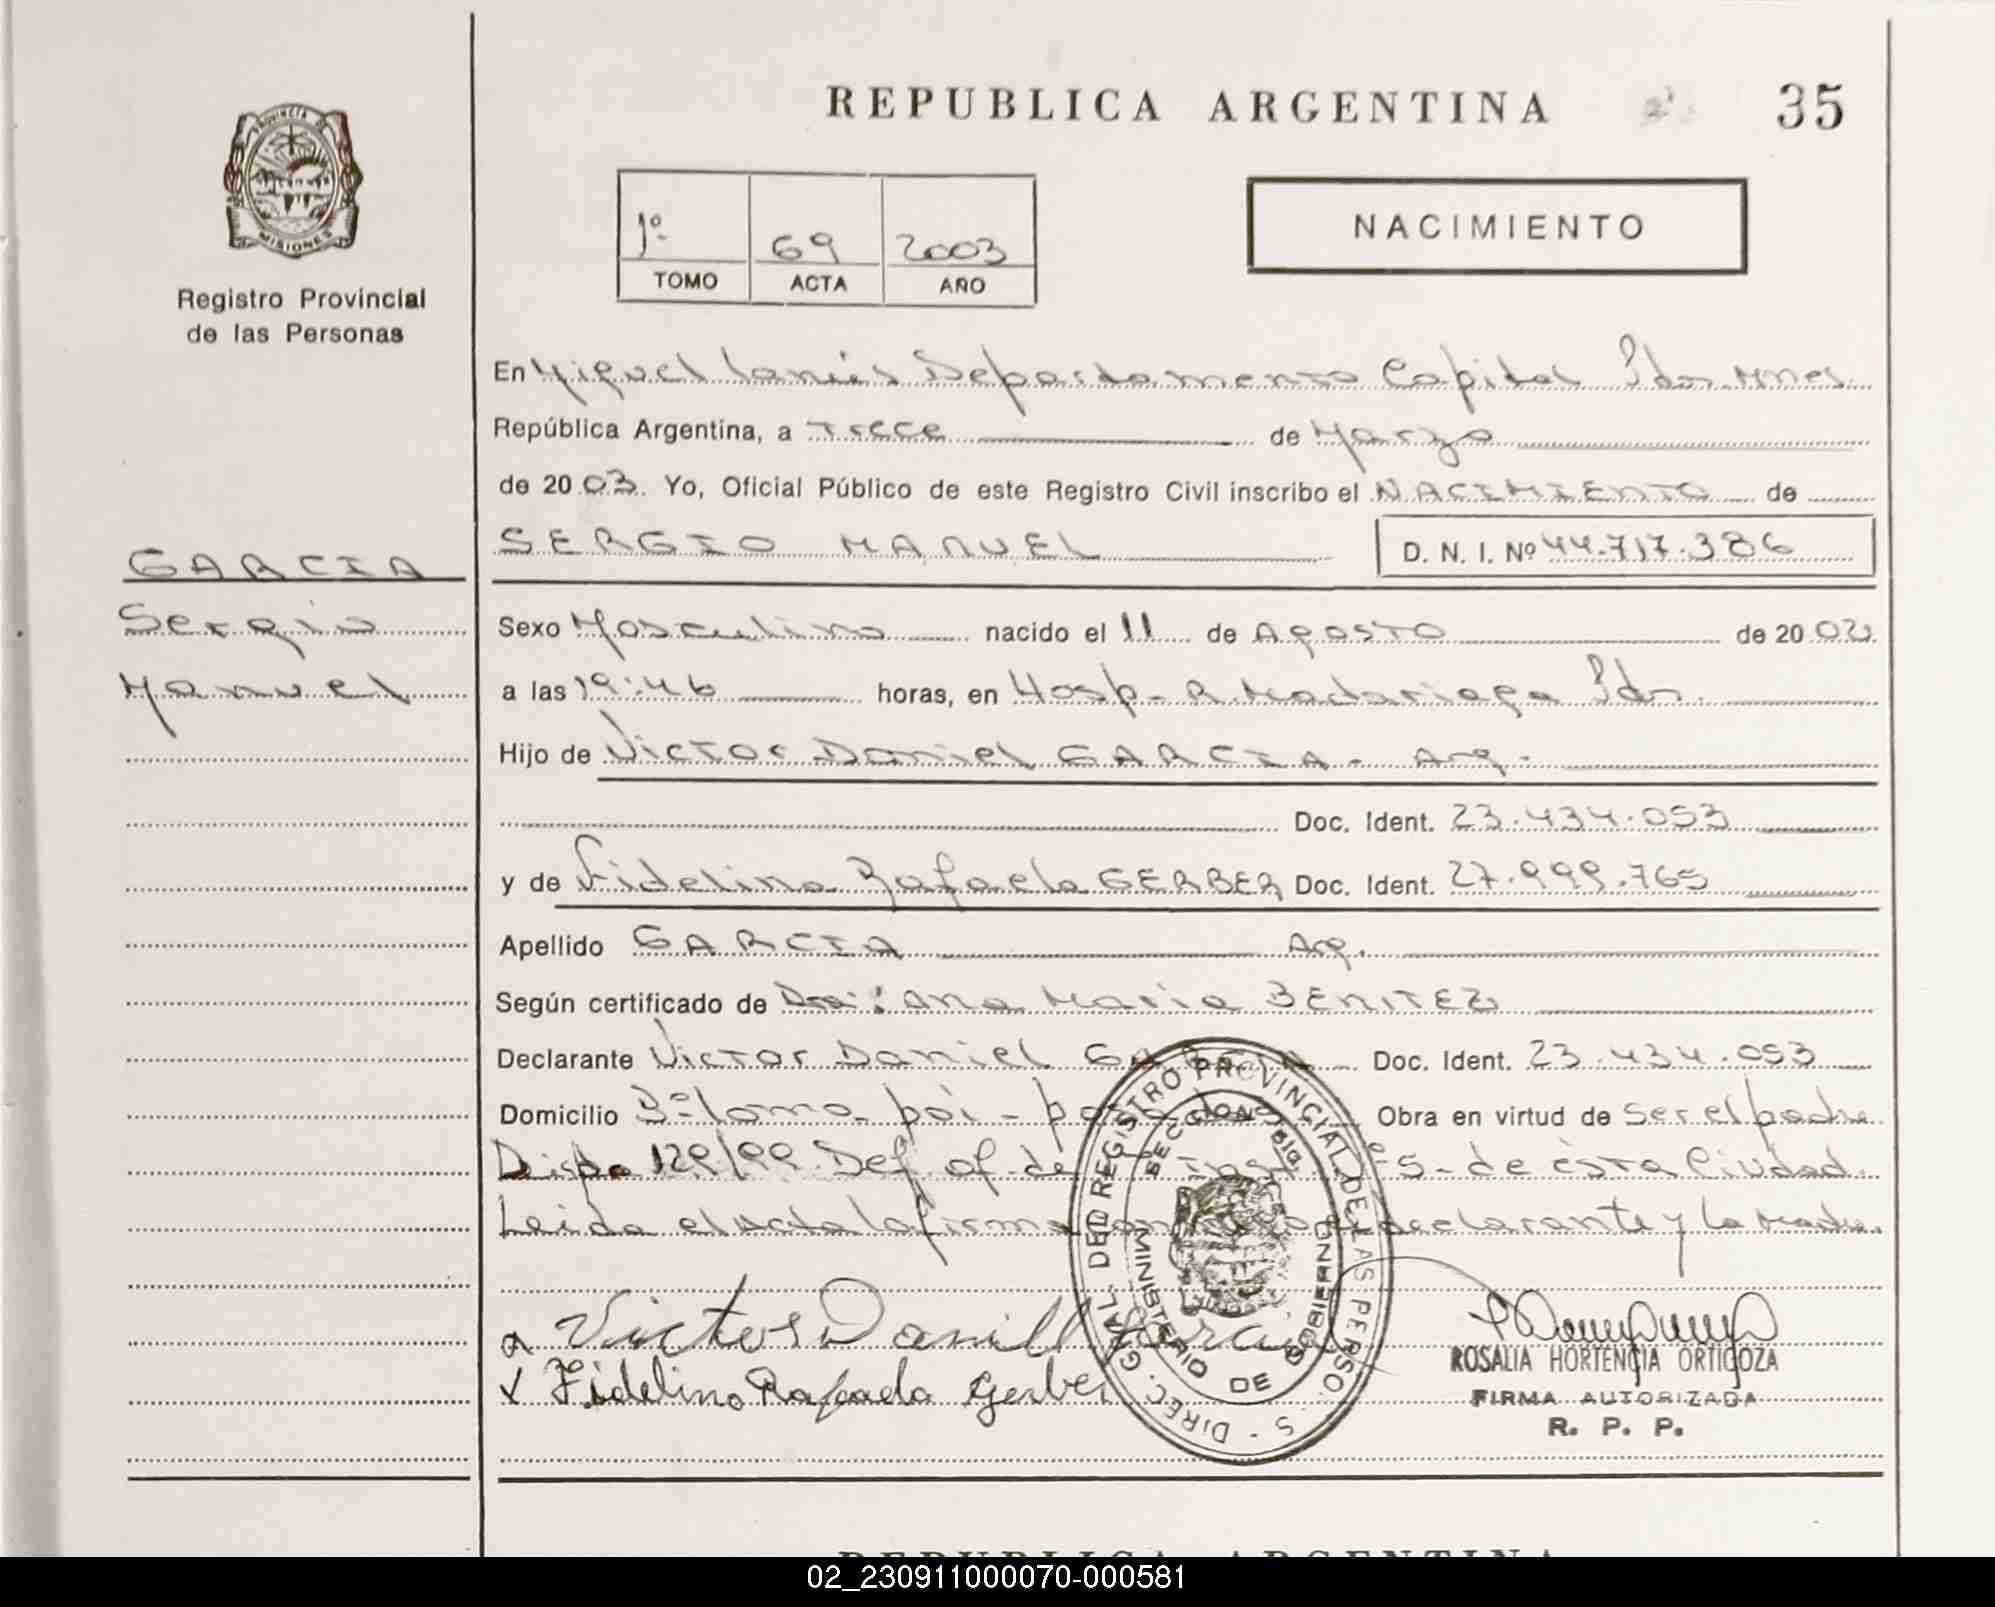 REPUBLICA ARGENTINA
35
PROVINCIA DE
MISIONES
Registro Provincial
de las Personas
1º 69 2003
TOMO ACTA AÑO
NACIMIENTO
En Miguel Lanús Departamento Capital Pdas. Mnes.
República Argentina, a Trece de Marzo
de 2003. Yo, Oficial Público de este Registro Civil inscribo el NACIMIENTO de
SERGIO MANUEL
D. N. I. Nº 44.717.386
GARCIA
Sergio
Manuel
Sexo Masculino nacido el 11 de Agosto de 2002
a las 19:46 horas, en Hosp. R. Madariaga Pdas.
Hijo de Victor Daniel GARCIA - Arg.
Doc. Ident. 23.434.053
y de Fidelina Rafaela GERBER Doc. Ident. 27.999.765
Apellido GARCIA Arg.
Según certificado de Dra: Ana Maria BENITEZ
Declarante Victor Daniel GARCIA Doc. Ident. 23.434.053
Domicilio Bº loma poi - posadas Obra en virtud de Ser el padre
Dispo 129/99 Def. of. de Nº 5 - de ésta Ciudad
Leida el Acta la firma declarante y la Madre
Victor Daniel Garcia
x Fidelina Rafaela Gerber
DIREC. GRAL. DEL REGISTRO PROVINCIAL DE LAS PERSONAS
MINISTERIO DE GOBIERNO
ROSALIA HORTENCIA ORTIGOZA
FIRMA AUTORIZADA
R. P. P.
REPUBLICA ARGENTINA
02_230911000070-000581